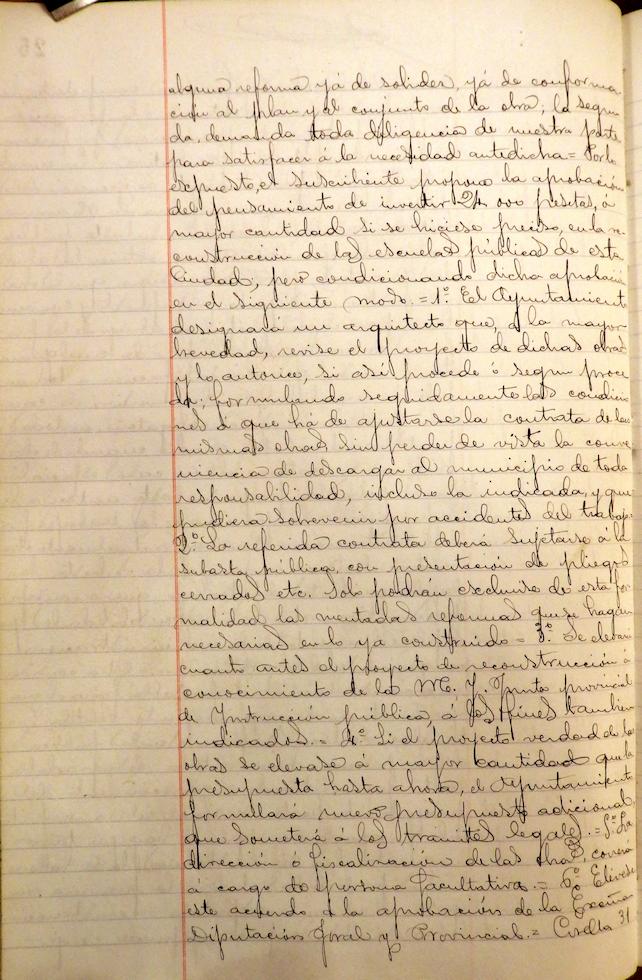 alguna reforma yá de solidez, yá de conforma-
ción al plan y al conjunto de la obra; la segun-
da, demanda toda diligencia de nuestra parte
para satisfacer á la necesidad antedicha = Por lo
espuesto, el suscribiente propone la aprobación
del pensamiento de invertir 24.000 pesetas, ó
mayor cantidad si se hiciese preciso, en la re-
construcción de las escuelas públicas de esta
Ciudad; pero condicionando dicha aprobación
en el siguiente modo. = 1º. El Ayuntamiento
designará un arquitecto que, á la mayor
brevedad, revise el proyecto de dichas obras
y lo autorice, si así procede ó segun proce-
da; formulando seguidamente las condicio-
nes á que há de ajustarse la contrata de las
mismas obras, sin perder de vista la conve-
niencia de descargar al municipio de toda
responsabilidad, incluso la indicada, y que
pudiera sobrevenir por accidentes del trabajo =
2º. La referida contrata deberá sujetarse á la
subasta pública, con presentación de pliegos
cerrados etc. Solo podrán escluirse de esta for-
malidad, las mentadas reformas que se hagan
necesarias en lo ya construido = 3º. Se elevará
cuanto antes el proyecto de reconstrucción á
conocimiento de la M. Y. Junta provincial
de Ynstrucción pública, á los fines tambien
indicados. = 4º. Si el proyecto verdad de las
obras se elevase á mayor cantidad que la
presupuesta hasta ahora, el Ayuntamiento
formulará nuevo presupuesto adicional,
que someterá á los trámites legales. = 5º. La
dirección ó fiscalización de las obras, correrá
á cargo de persona facultativa. = 6º. Elévese
este acuerdo á la aprobación de la Excma
Diputación foral y Provincial. = Corella 31